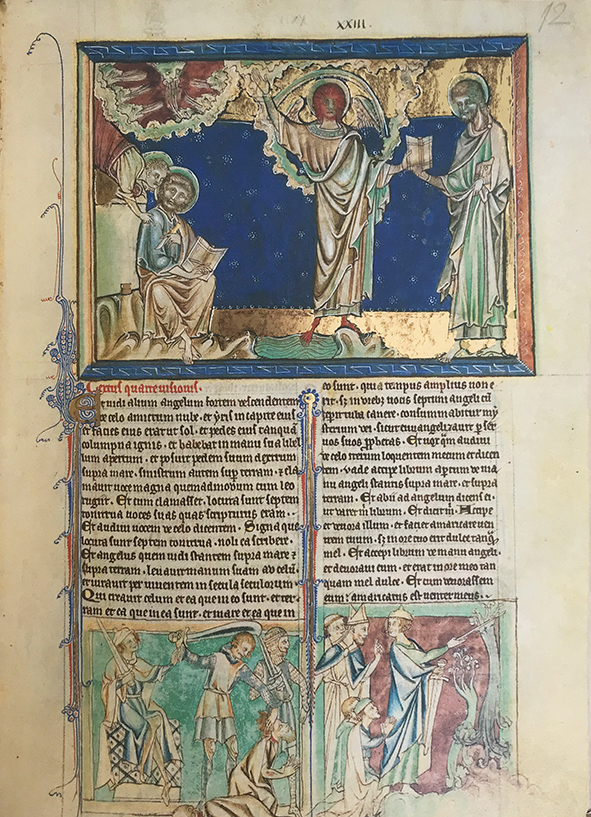 XXIII.
12
Textus quarte visionis.
Et uidi alium angelum fortem descendentem
de celo amictum nube. et yris in capite eius
et facies eius erat ut sol. et pedes eius tanquā
columpna ignis. et habebat in manu sua libel
lum apertum. et posuit pedem suum dextrum
supra mare. sinistrum autem super terram. et cla
mauit uoce magna quemadmodum cum leo
rugit. Et cum clamasset. locuta sunt septem
tonitrua uoces suas
Et audiui uocem de celo dicentem. Signa que
locuta sunt septem tonitrua. noli ea scribere.
Et angelus quem uidi stantem supra mare ⁊
supra terram. leuauit manum suam ad celū.
et iurauit per uiuentem in secula seculorum.
Qui creauit celum et ea que in eo sunt. et ter
ram et ea que in ea sunt. et mare et ea que in
eo sunt. quia tempus amplius non e
rit. in diebus uocis septimi angeli cū
ceperit tuba canere. consummabitur mi
sterium dei. sicut euangelizauit per ser
uos suos prophetas. Et uox quam audiui
de celo iterum loquentem mecum et dicen
tem. uade accipe librum apertum de ma
nu angeli stantis supra mare. et supra
terram. Et abii ad angelum dicens ei.
ut daret m librum. Et dicit m. Accipe
et deuora illum. et faciet amaricare uen
trem tuum. in ore tuo erit dulce tanquā
mel. Et accepi librum de manu angeli.
et deuoraui eum. et erat in ore meo tan
quam mel dulce. Et cum deuorassem
eum. amaricatus est uenter meus.